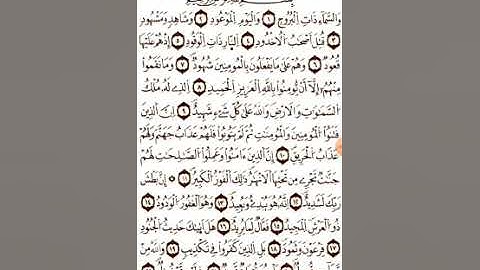 وَالسَّمَآءِ ذَاتِ الْبُرُوجِ ١ وَالْيَوْمِ الْمَوْعُودِ ٢ وَشَاهِدٖ وَمَشْهُودٖ
٣ قُتِلَ أَصْحَٰبُ الُاخْدُودِ ٤ النَّارِ ذَاتِ الْوَقُودِ ٥ إِذْ هُمْ عَلَيْهَا
قُعُودٞ ٦ وَهُمْ عَلَىٰ مَا يَفْعَلُونَ بِالْمُومِنِينَ شُهُودٞ ٧ وَمَا نَقَمُوا
مِنْهُمُۥ إِلَّآ أَنْ يُّومِنُوا بِاللَّهِ الْعَزِيزِ الْحَمِيدِ ٨ الذِے لَهُۥ مُلْكُ
السَّمَٰوَٰتِ وَالَارْضِ وَاللَّهُ عَلَىٰ كُلِّ شَےْءٖ شَهِيدٌ ٩ اِنَّ الذِينَ
فَتَنُوا الْمُومِنِينَ وَالْمُومِنَٰتِ ثُمَّ لَمْ يَتُوبُوا فَلَهُمْ عَذَابُ جَهَنَّمَ وَلَهُمْ
عَذَابُ الْحَرِيقِ ١٠ إِنَّ الذِينَ ءَامَنُوا وَعَمِلُوا الصَّٰلِحَٰتِ لَهُمْ
جَنَّٰتٞ تَجْرِے مِن تَحْتِهَا الَانْهَٰرُ ذَٰلِكَ الْفَوْزُ الْكَبِيرُ ١١ إِنَّ بَطْشَ
رَبِّكَ لَشَدِيدٌ ١٢ اِنَّهُۥ هُوَ يُبْدِئُ وَيُعِيدُ ١٣ وَهُوَ الْغَفُورُ الْوَدُودُ ١٤
ذُو الْعَرْشِ الْمَجِيدُ ١٥ فَعَّالٞ لِّمَا يُرِيدُ ١٦ هَلَ اَتَيٰكَ حَدِيثُ الْجُنُودِ
١٧ فِرْعَوْنَ وَثَمُودَ ١٨ بَلِ الذِينَ كَفَرُوا فِے تَكْذِيبٖ ١٩ وَاللَّهُ مِنْ